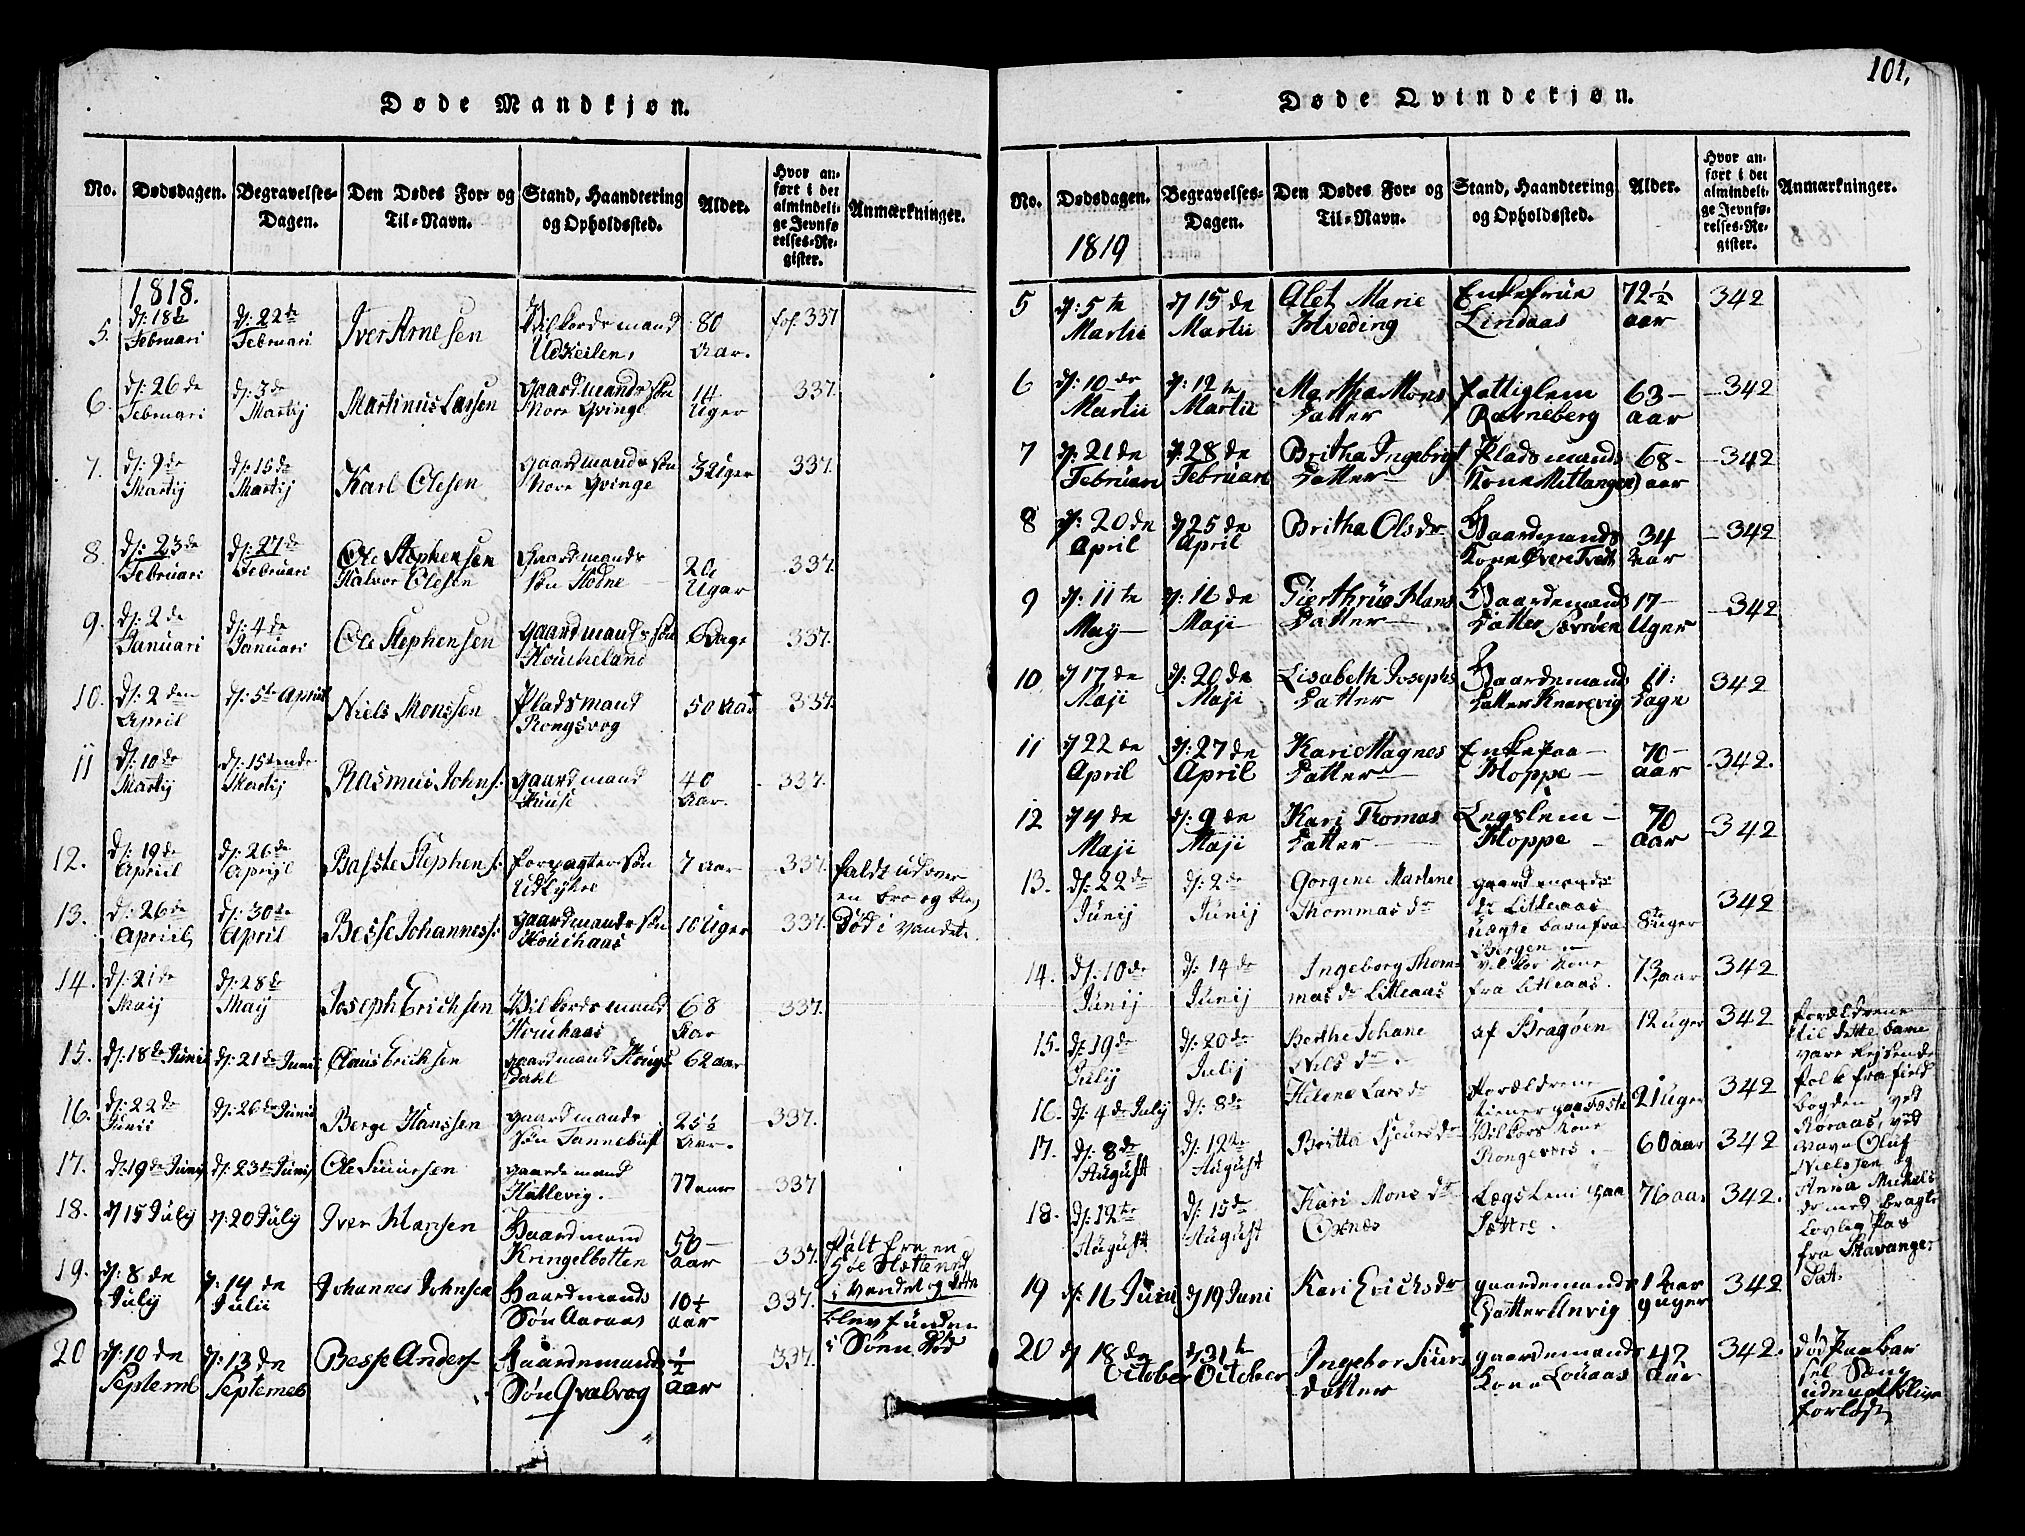 101.
Døde Mandkjøn.
No. Dødsdagen. Begravelses-Dagen. Den Dødes For- og Til-Navn. Stand, Haandtering og Opholdssted. Alder. Hvor anført i det almindelige Jevnførelses-Register. Anmærkninger.
1818.
5. d: 18de Februari d: 22de Februari Iver Arnesen Vilkordsmand Udkeilen, 80 Aar. fol. 337
6. d: 26de Februari d: 3de Martij Martinus Lassen gaardmands søn Nore Qvinge 14 Uger 337.
7. d: 9de Martij d: 15de Martij Karl Olesen gaardmands søn Nore Qvinge 3 Uger 337.
8. d: 23de Februari d: 27de Februari Ole Stephensen Halvor Olesen Gaardmands søn Hodne 20 Ugar 337.
9. d: 2de Januari d: 4de Januari Ole Stephensen gaardmands søn Houcheland 6 Dage 337.
10. d: 2den April d: 5te April Niels Monssen Pladsmand Rongsvog 50 Aar 337.
11 d: 10de Martij d: 15tende Martij Rasmus Johns: gaardmand Huuse 40 Aar. 337.
12. d: 19de Apriil d: 26de Aprijl Basste Stephens: forpagter søn Udlykke 7 Aar 337. faldt ud over en bro og blev Død i Vandet.
13. d: 26de Apriil d: 30de April Besse Johanness: gaardmands søn Houchaas 10 Uger 337.
14. d: 21de Maij d: 28de Maij Joseph Erichsen Vilkordsmand Houchaas 68 Aar 337.
15. d: 18de Junii d: 21de Junii Claus Ericksen gaardmand Kongsdahl 62 aar
16. d: 22de Junii d: 26de Junii Berge Hanssen gaardmands søn Tannebust 25½ Aar. 337.
17. d: 19de Junij d: 23de Junij Ole Siuursen gaardemand Hattevig. 77 aar 337
18. d 15 July d: 20 July Iver Hansen Gaardmand Kringelbotten 50 aar 337.
19. d: 8de July d: 14de Julii Johannes Johnsen Gaardmands Søn Aaraas 10½ aar 337. falt fra en Søe Slettend i Vandet og blev funden i Søen Død
20 d: 10de Septemb d: 13de Septembs Besse Anders- Gaardemands Søn Qvalvog ½ aar 337.
Døde Qvindekjøn.
No. Dødsdagen. Begravelses-Dagen. Den Dødes For- og Til-Navn. Stand, Haandtering og Opholdssted. Alder. Hvor anført i det almindelige Jevnførelses-Register. Anmærkninger.
1819
5 d: 5te Martii d 15de Martii Alet Marie Hveding Enkefrue Lindaas 72½ aar 342
6 d: 10de Martii d: 12te Martii Martha Mons Datter fattiglem Ravneberg 63 aar 342
7 d: 21de Februari d: 28de Februari Britha Ingebrigt Datter Pladsmands Kone Mettangen 68 aar 342
8 d: 20de April d 25de April Britha Olsdr Gaardmands Kone Øvere Tvedt 34 Aar 342
9 d: 11te May d: 16de Maji Gierthrue Hans Datter Gaardemands Datter Særøen 17 Uger 342
10 d 17de Maji d: 20de Maji Lisabeth Josephs Datter Gaardemands Datter Knarevig 11: Dage 342
11 d 22de April d: 27de April Kari Magnes Datter Enke paa Kloppe 70 aar 342.
12 d 4de Maji d: 9de Maji Kari Thomas Datter Legslem Kloppe 70 aar 342
13. d: 22de Junij d: 2de Junij Gorgene Martene Thommasdr gaardmands dr Litleaas uægte barn fra Bergen 8te uger 342
14. d: 10de Junij d: 14de Junij Ingeborg Thommasdr Litleaas Vilkor Kone fra Litleaas. 73 aar 342
15. d: 19de Julij d: 20de Julij Berthe Johane Nilsdr af Bragøen 12 uger 342 forældrene til dette barn vare Rejsende folk fra field bogden ved Roraas, ved Navn Oluf Nielssen og Anna Mickelsdr medbragte Lovleg Pas fra Stavanger Sat.
16. d: 4de July d: 8de Helene Larsdr Forældrene tiener paa Feste 21 uger 342
17. d: 8de August d: 12te August Britta Sjursdr Vilkors Kone Rongevær. 60 aar 342
18. d: 12te August d: 15de August Kari Monsdr Oxnæs Lægs Lem paa Sættre. 76 aar 342.
19 d: 16 Juni d 19 Juni Kari Erichsdr gaardemands Datter Anvig 1 Aar 9 uger 342
20 d 18de October d 31te October Ingebor Siurs datter gaardemands Kone Louaas 47 aar 342. død Paa barsel Seng uden at blive forløst